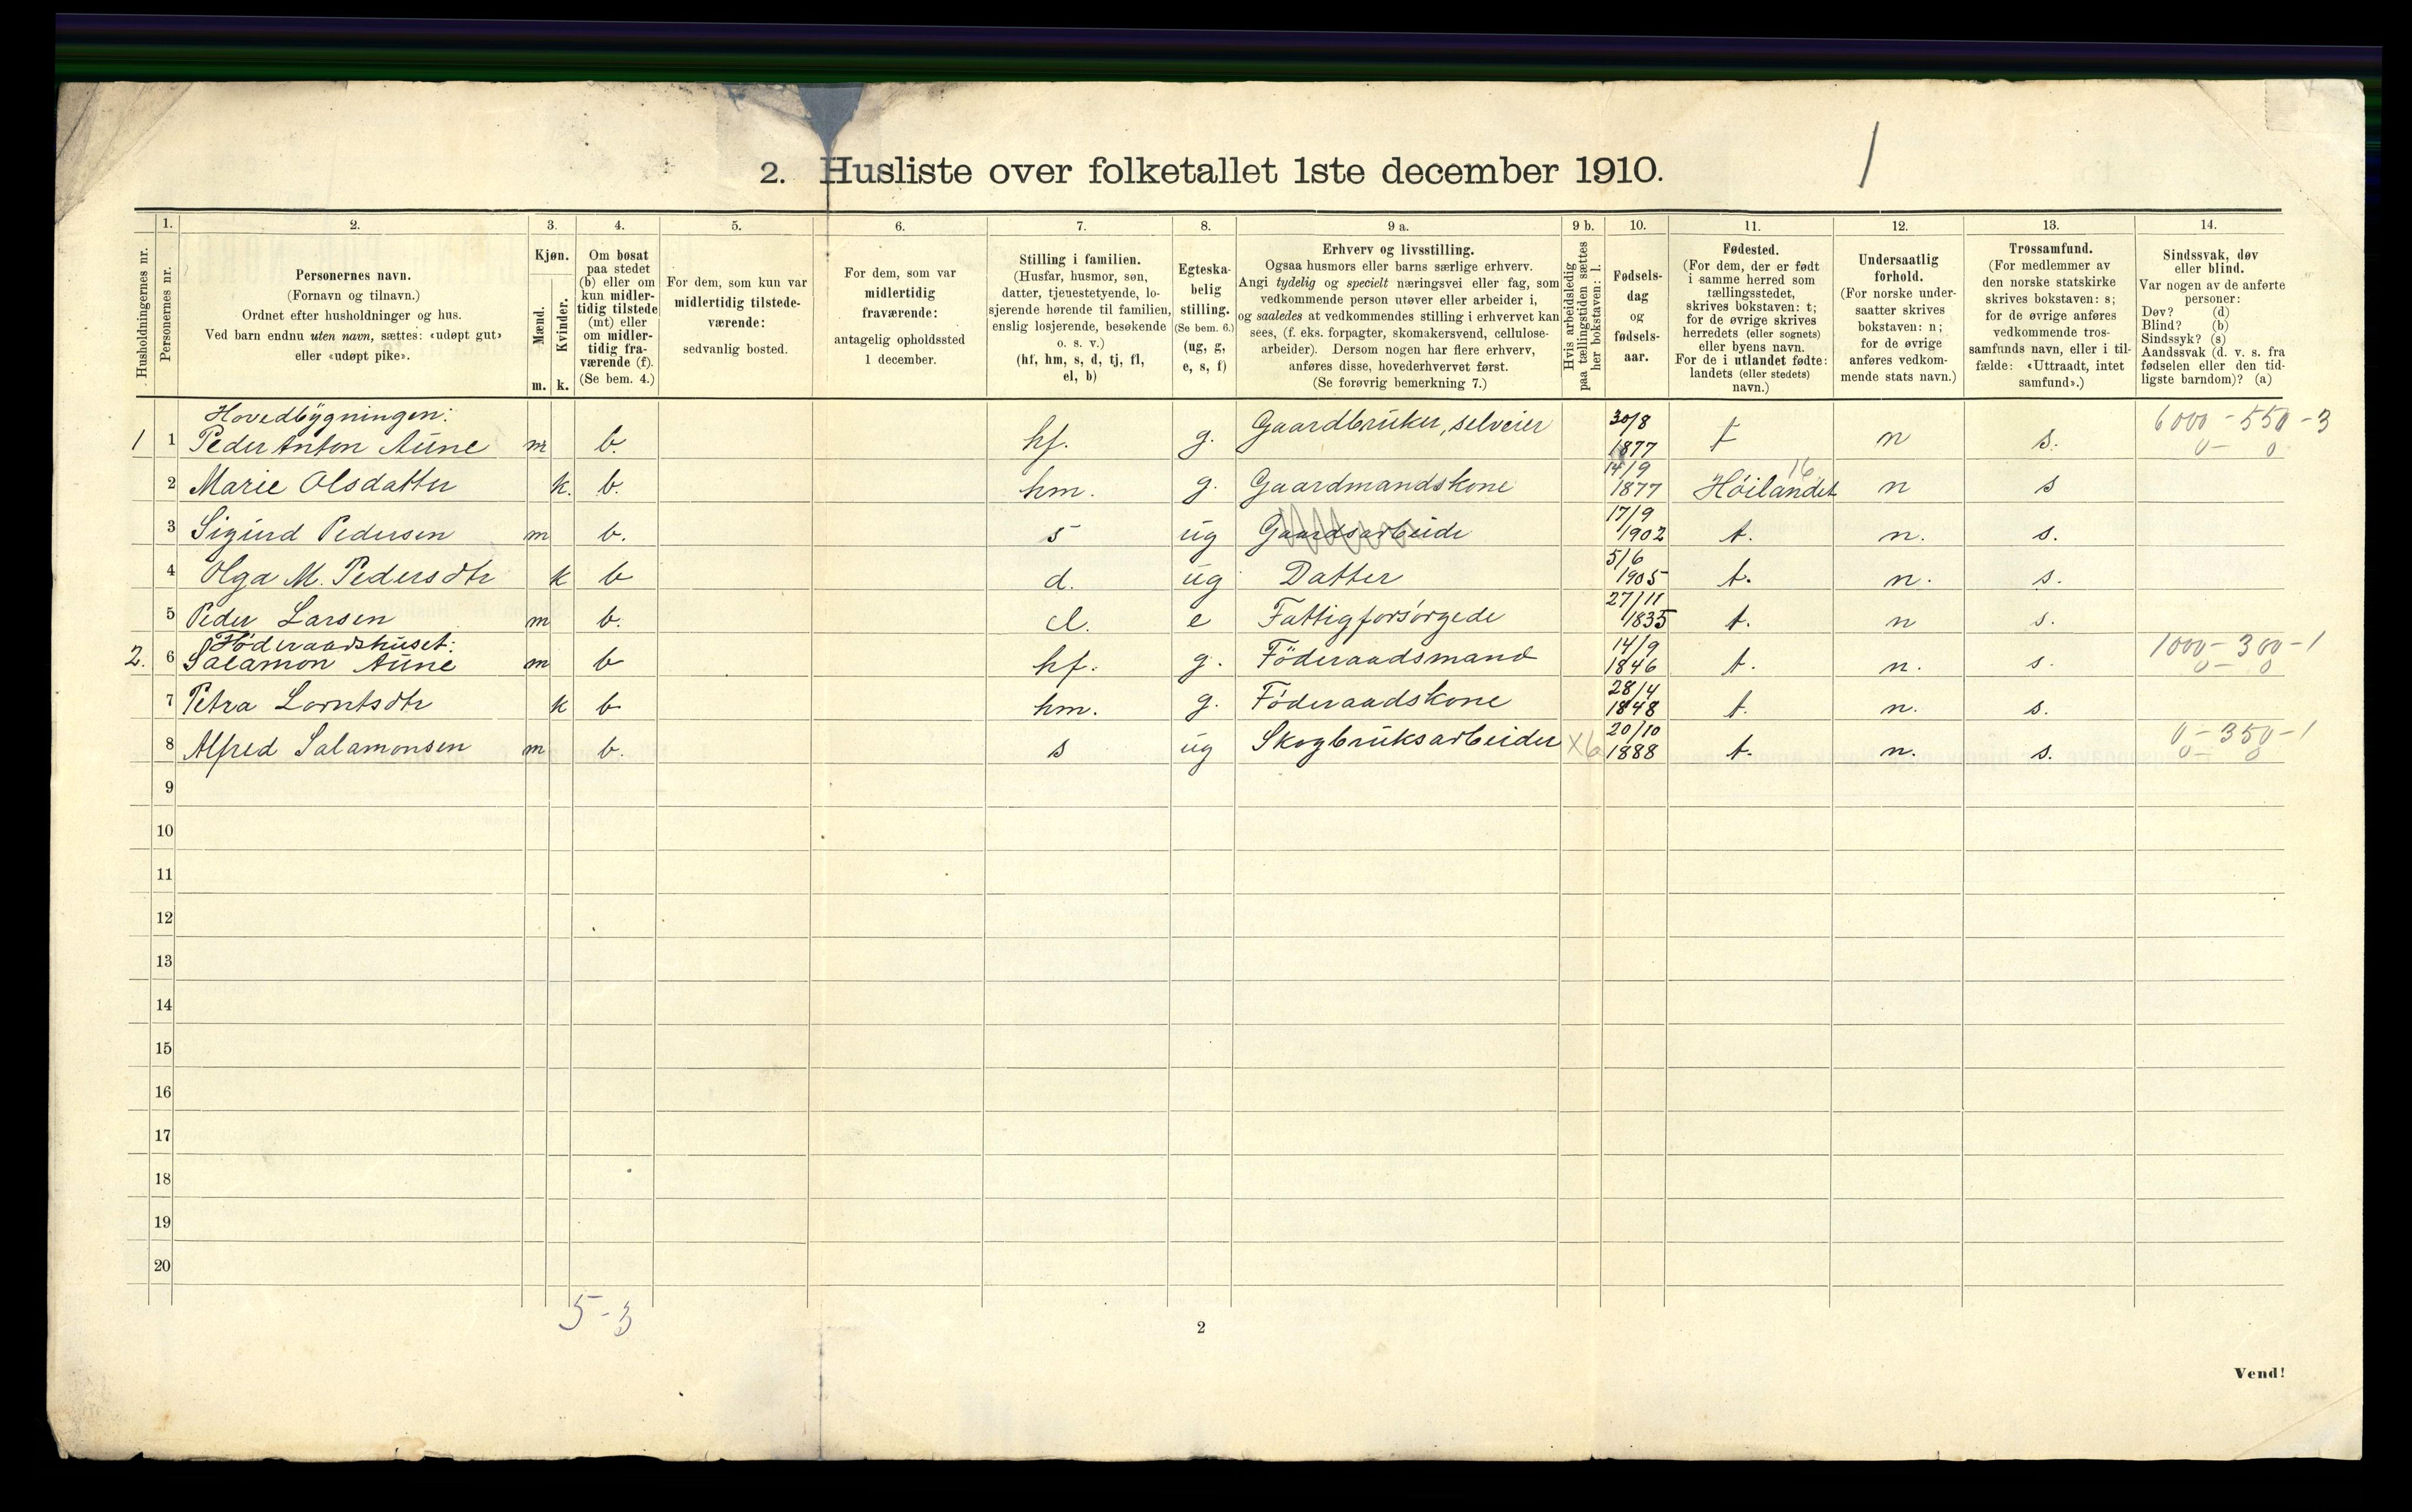 1
2. Husliste over folketallet 1ste december 1910.
Husholdningernes nr.
1.
Personernes nr.
2.
Personernes navn.
(Fornavn og tilnavn.)
Ordnet efter husholdninger og hus.
Ved barn endnu uten navn, sættes: «udøpt gut»
eller «udøpt pike».
3.
Kjøn.
Mænd.
Kvinder.
m. k.
4.
Om bosat
paa stedet
(b) eller om
kun midler-
tidig tilstede
(mt) eller
om midler-
tidig fra-
værende (f).
(Se bem. 4.)
5.
For dem, som kun var
midlertidig tilstede-
værende:
sedvanlig bosted.
6.
For dem, som var
midlertidig
fraværende:
antagelig opholdssted
1 december.
7.
Stilling i familien.
(Husfar, husmor, søn,
datter, tjenestetyende, lo-
sjerende hørende til familien,
enslig losjerende, besøkende
o. s. v.)
(hf, hm, s, d, tj, fl,
el, b)
8.
Egteska-
belig
stilling.
(Se bem. 6.)
(ug, g,
e, s, f)
9 a.
Erhverv og livsstilling.
Ogsaa husmors eller barns særlige erhverv.
Angi tydelig og specielt næringsvei eller fag, som
vedkommende person utøver eller arbeider i,
og saaledes at vedkommendes stilling i erhvervet kan
sees, (f. eks. forpagter, skomakersvend, cellulose-
arbeider). Dersom nogen har flere erhverv,
anføres disse, hovederhvervet først.
(Se forøvrig bemerkning 7.)
9 b.
Hvis arbeidsledig
paa tællingstiden sættes
her bokstaven: l.
10.
Fødsels-
dag
og
fødsels-
aar.
11.
Fødested.
(For dem, der er født
i samme herred som
tællingsstedet,
skrives bokstaven: t;
for de øvrige skrives
herredets (eller sognets)
eller byens navn.
For de i utlandet fødte:
landets (eller stedets)
navn.)
12.
Undersaatlig
forhold.
(For norske under-
saatter skrives
bokstaven: n;
for de øvrige
anføres vedkom-
mende stats navn.)
13.
Trossamfund.
(For medlemmer av
den norske statskirke
skrives bokstaven: s;
for de øvrige anføres
vedkommende tros-
samfunds navn, eller i til-
fælde: «Uttraadt, intet
samfund».)
14.
Sindssvak, døv
eller blind.
Var nogen av de anførte
personer:
Døv? (d)
Blind? (b)
Sindssyk? (s)
Aandssvak (d. v. s. fra
fødselen eller den tid-
ligste barndom)? (a)
Hovedbygningen:
1 1 Peder Anton Aune m b. hf. g. Gaardbruker, selveier 30/8 1877 t n s. 6000-550-3
0- 0
2 Marie Olsdatter k. b. hm. g. Gaardmandskone 14/9 1877 Höilandet 16 n s
3 Sigurd Pedersen m b. s ug Gaardsarbeide 17/9 1902 t. n. s.
4 Olga M. Pedersdtr k b d. ug Datter 5/6 1905 t. n. s.
5 Peder Larsen m b. el. e Fattigforsörgede 27/11 1835 t. n s.
Föderaadshuset:
2. 6 Salamon Aune m b hf. g. Föderaadsmand 14/9 1846 t. n. s. 1000-300-1
0- 0
7 Petra Lorntsdtr k b hm. g. Föderaadskone 28/4 1848 t. n. s.
8 Alfred Salamonsen m b. s ug Skogbruksarbeider X6 20/10 1888 t. n. s. 0-350-1
0- 0
9
10
11
12
13
14
15
16
17
18
19
20
5-3
2
Vend!